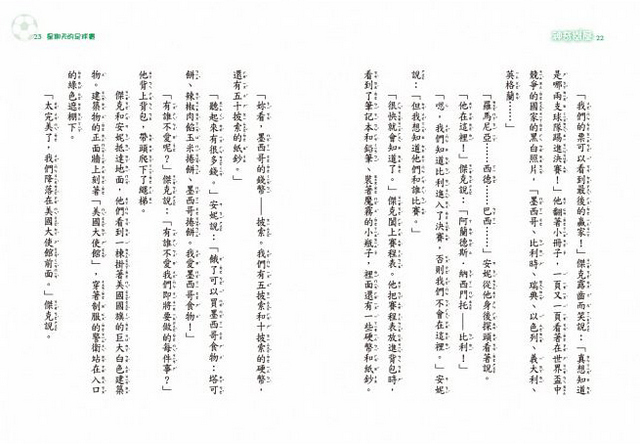 神奇樹屋 22
「我們的票可以看到最後的贏家！」傑克露齒而笑說：「真想知道
是哪兩支球隊踢進決賽！」他翻著小冊子，一頁又一頁看著在世界盃中
競爭的國家的黑白照片，「墨西哥、比利時、瑞典、以色列、義大利、
英格蘭……」
「羅馬尼亞……西德……巴西……」安妮從他身後探頭看著說。
「他在這裡！」傑克說：「阿蘭德斯．納西門托──比利！」
「嗯，我們知道比利進入了決賽，否則我們不會在這裡。」安妮
說：「但我想知道他們和誰比賽。」
「很快就會知道了。」傑克闔上賽程表。他把賽程表放進背包時，
看到了筆記本和鉛筆、裝著魔霧的小瓶子，裡面還有一些硬幣和紙鈔。
23 足球賽
「妳看，墨西哥的錢幣──披索。我們有五披索和十披索的硬幣，
還有五十披索的紙鈔。」
「聽起來有很多錢。」安妮說：「餓了可以買墨西哥食物：塔可
餅、辣椒肉餡玉米捲餅、墨西哥捲餅。我愛墨西哥食物！」
「有誰不愛呢？」傑克說：「有誰不愛我們即將要做的每件事？」
他背上背包，帶頭爬下了繩梯。
傑克和安妮抵達地面，他們看到一棟掛著美國國旗的巨大白色建築
物。建築物的正面牆上刻著「美國大使館」，穿著制服的警衛站在入口
的綠色遮棚下。
「太完美了，我們降落在美國大使館前面。」傑克說。